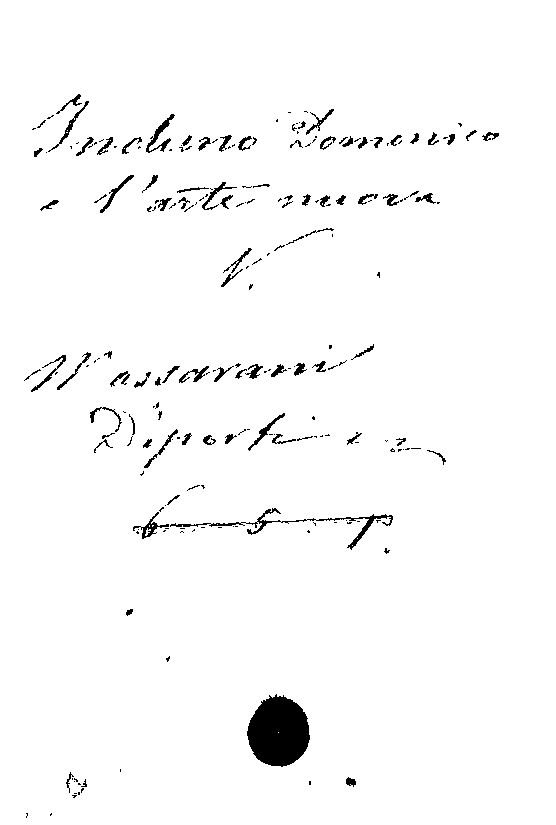 Induno Domenico
e l'arte nuova
V.
Massarani
Diporti e
6 5 1.